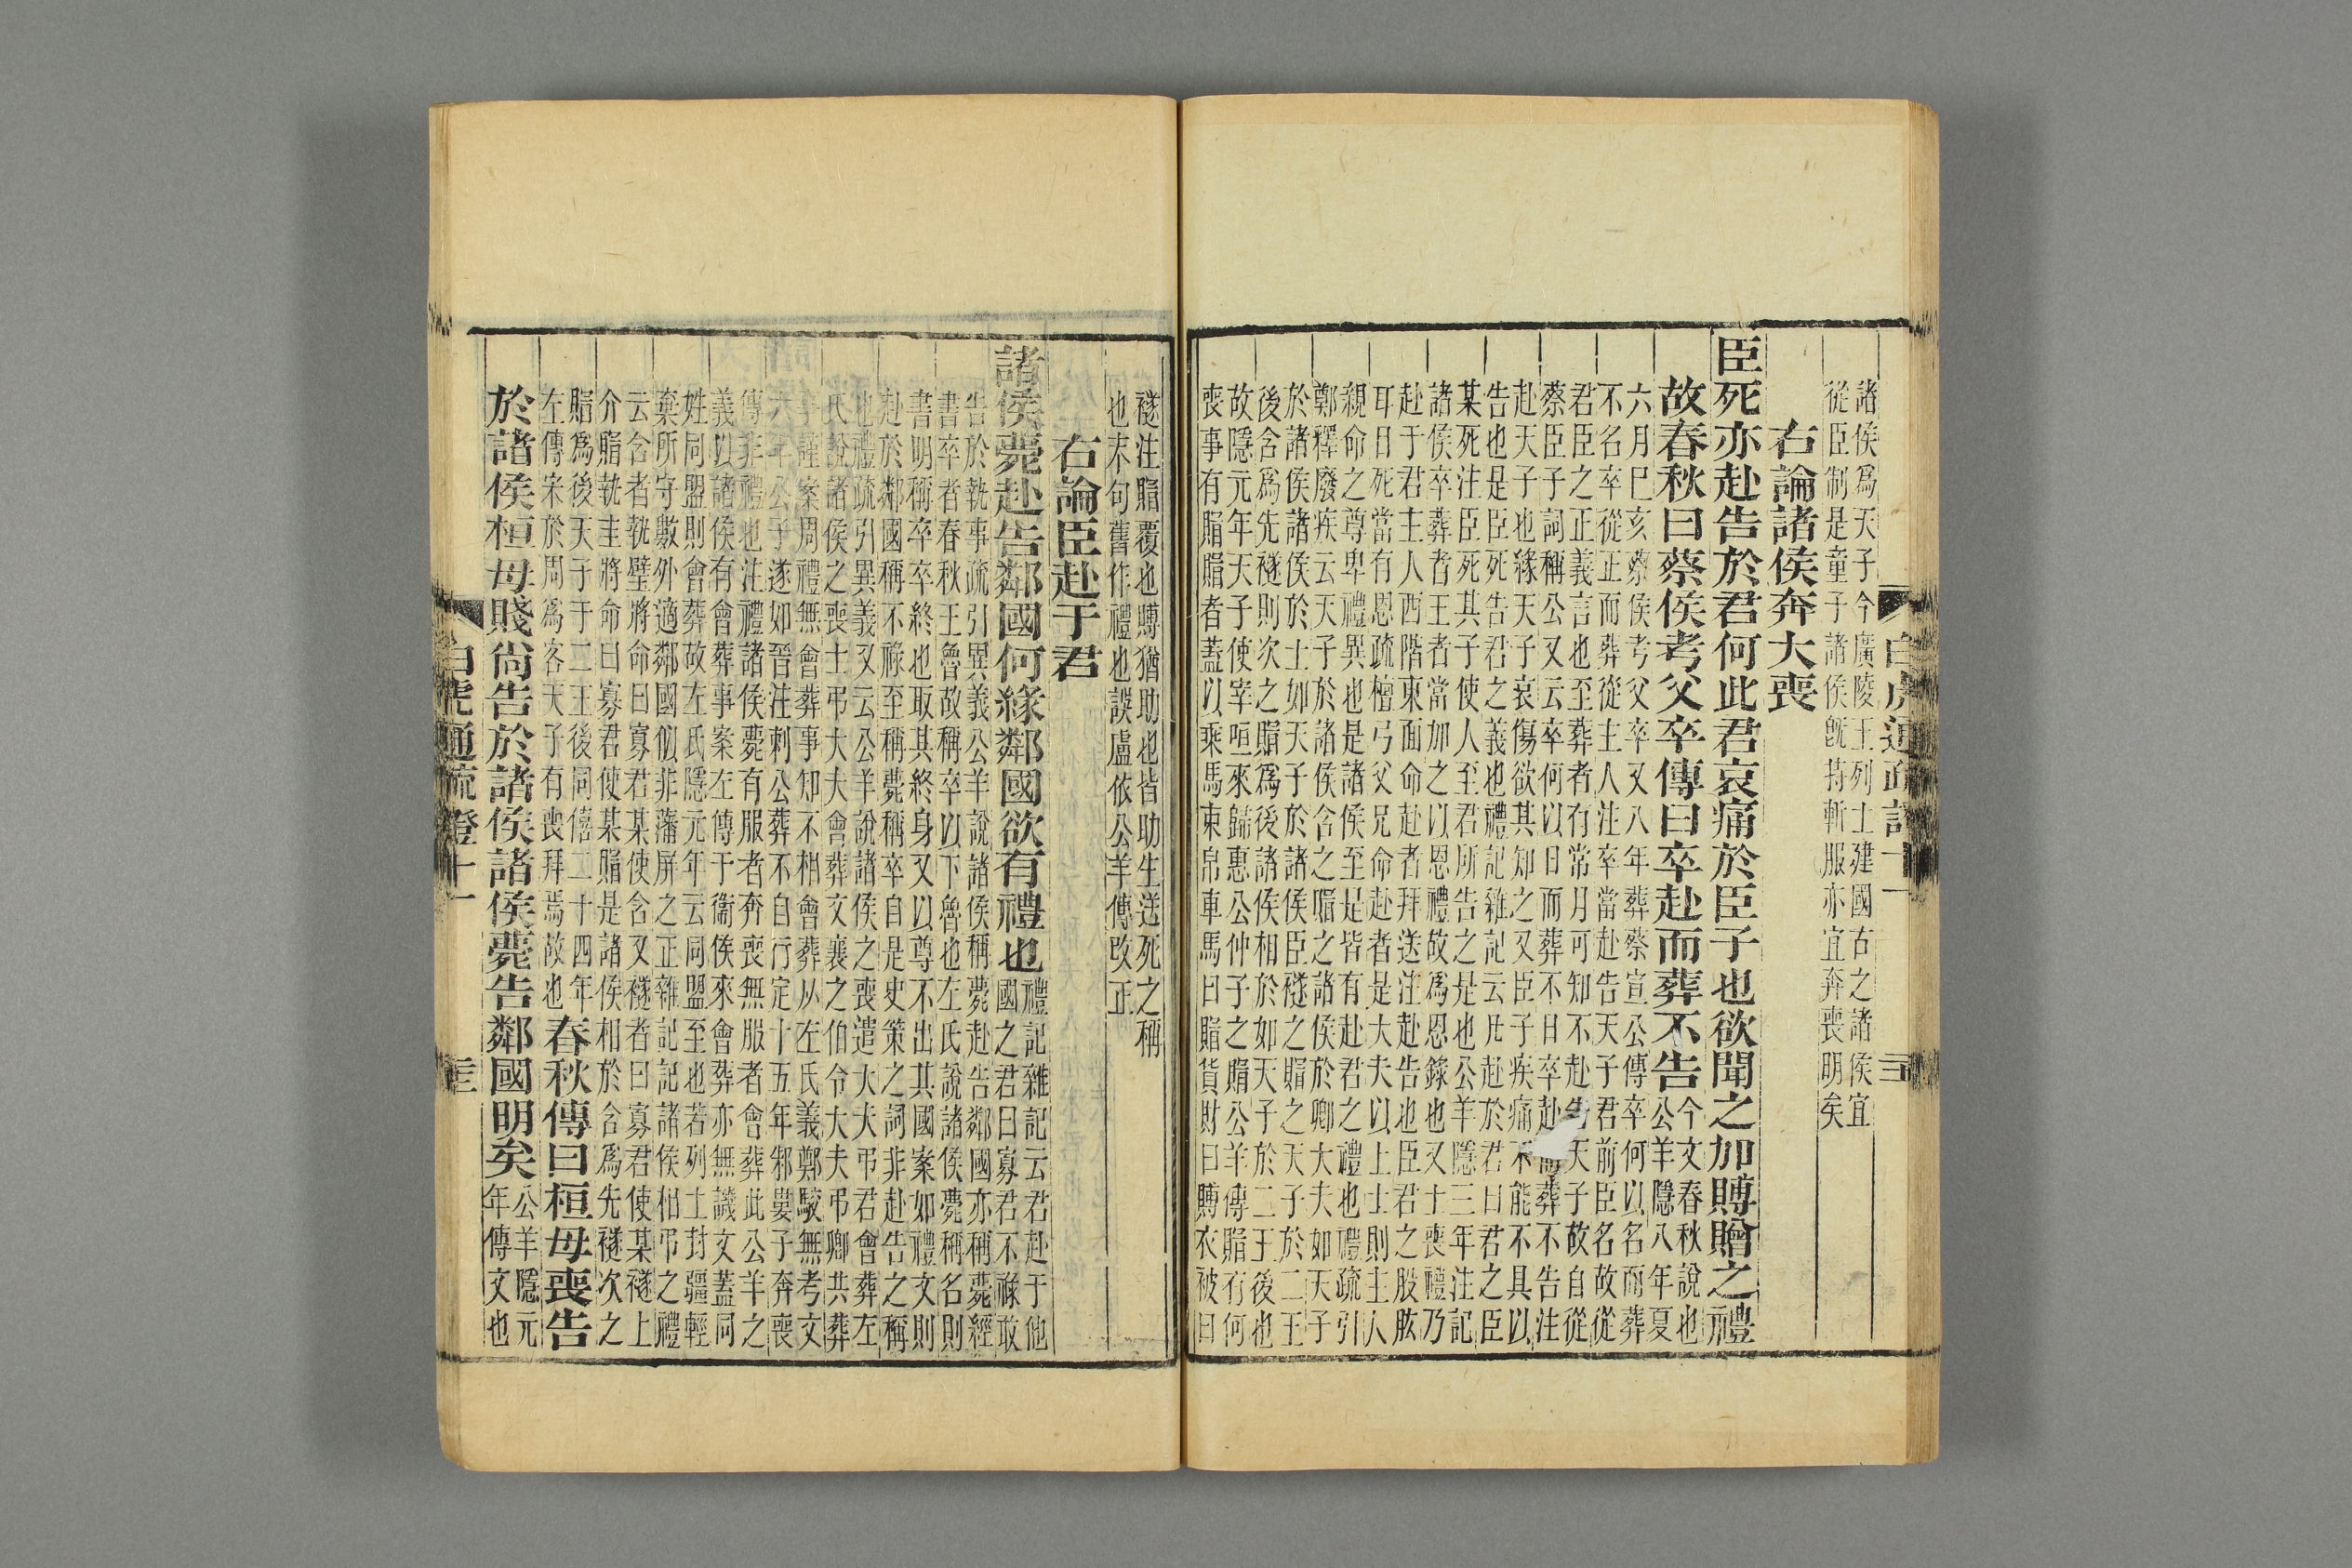 諸侯爲天子今廣陵王列士建國古之諸侯宜
從臣制是童子諸侯旣持斬服亦宜奔喪明矣
右論諸侯奔大喪
臣死亦赴告於君何此君哀痛於臣子也欲聞之加賻贈之禮
故春秋曰蔡侯考父卒傳曰卒赴而葬不告
今文春秋說也
公羊隱八年夏
六月巳亥蔡侯考父卒又八年葬蔡宣公傳卒何以名而葬
不名卒從正而葬從主人注卒當赴告天子君前臣名故從
君臣之正義言也至葬者有常月可知不赴告天子故自從
蔡臣子詞稱公又云卒何以日而葬不日卒赴而葬不告注
赴天子也緣天子哀傷欲其知之又臣子疾痛不能不具以
告也是臣死告君之義也禮記雜記云凡赴於君曰君之臣
某死注臣死其子使人至君所告之是也公羊隱三年注記
諸侯卒葬者王者當加之以恩禮故爲恩錄也又士喪禮乃
赴于君主人西階東面命赴者拜送注赴告也臣君之股肱
耳目死當有恩疏檀弓父兄命赴者是大夫以上士則主人
親命之尊卑禮異也是諸侯至是皆有赴君之禮也禮疏引
鄭釋廢疾云天子於諸侯含之賵之諸侯於卿大夫如天子
於諸侯諸侯於士如天子於諸侯臣襚之賵之天子於二王
後含爲先襚則次之賵爲後諸侯相於如天子於二王後也
故隱元年天子使宰咺來歸惠公仲子之賵公羊傳賵有何
喪事有賵賵者蓋以乘馬束帛車馬曰賵貨財曰賻衣被曰
襚注賵覆也賻猶助也皆助生送死之稱
也末句舊作禮也誤盧依公羊傳改正
右論臣赴于君
諸侯薨赴告鄰國何緣鄰國欲有禮也
禮記雜記云君赴于他
國之君曰寡君不祿敢
告於執事疏引異義公羊說諸侯稱薨赴告鄰國亦稱薨經
書卒者春秋王魯故稱卒以下魯也左氏說諸侯薨稱名則
書明稱卒卒終也取其終身又以尊不出其國案如禮文則
赴於鄰國稱不祿至稱薨稱卒自是史策之詞非赴告之稱
也禮疏引異義又云公羊說諸侯之喪遣大夫弔君會葬左
氏說諸侯之喪士弔大夫會葬文襄之伯令大夫弔卿共葬
謹案周禮無會葬事知不相會葬从左氏義鄭駮無考文
六年公子遂如晉注刺公葬不自行定十五年邾婁子奔喪
傳非禮也注禮諸侯薨有服者奔喪無服者會葬此公羊之
義以諸侯有會葬事案左傳于衞侯來會葬亦無譏文蓋同
姓同盟則會葬故左氏隱元年云同盟至也若列土封疆輕
棄所守數外適鄰國似非藩屏之正雜記記諸侯相弔之禮
云含者執璧將命曰寡君某使含又襚者曰寡君使某襚上
介賵執圭將命曰寡君使某賵是諸侯相於含爲先襚次之
賵爲後天子于二王後同僖二十四年
左傳宋於周爲客天子有喪拜焉故也
春秋傳曰桓母喪告
於諸侯桓母賤尙告於諸侯諸侯薨告鄰國明矣
公羊隱元
年傳文也
白虎通疏證十一